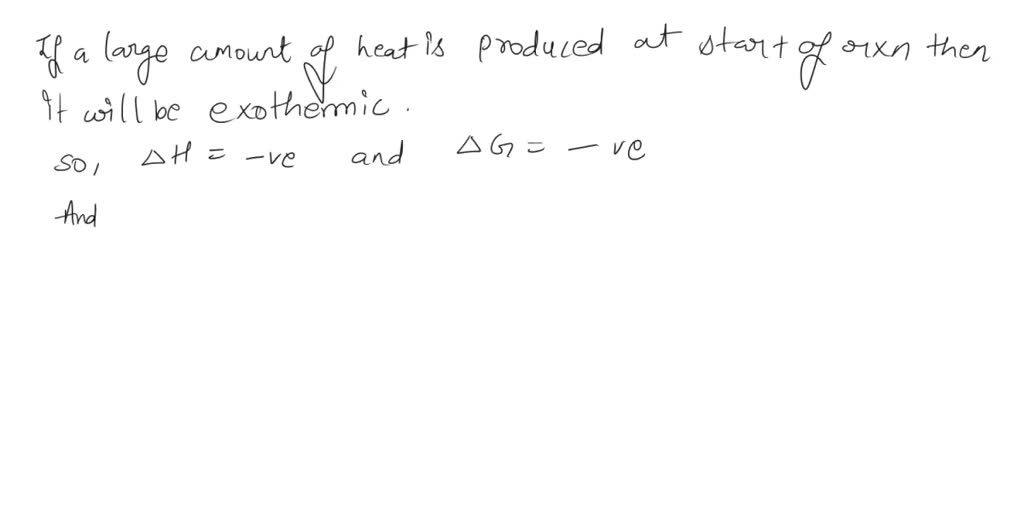 If a large amount of heat is produced at start of rxn then
It will be exothermic.
so, ΔH = -ve and ΔG = - ve
And